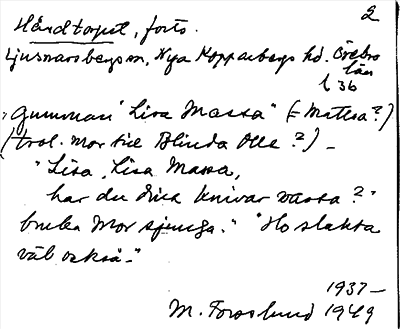 2
Håndtaget, forts.
Ljusnarsbergs sn, Nya Kopparbergs hd. Örebro
län
l 36
"Gumman "Lisa Massa" (= Matlsa?)
(trol. mor till Blinda Olle?) –
"Lisa, Lisa Massa,
har du dina knivar vassa?"
bruka Mor sjunga." "Ho slakta
väl också."
1937–
M. Forslund 1949